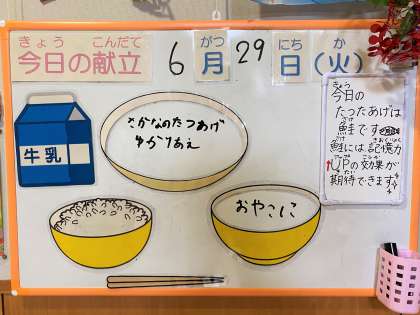 きょう こんだて
今日の献立
6
がつ
月
29
にち
日
か
(火)
牛乳
さかなのたつあげ
ゆかりあえ
おやこに
きょう
今日の
たったあげは
鮭です
鮭には記憶力
UPの効果が
期待できます